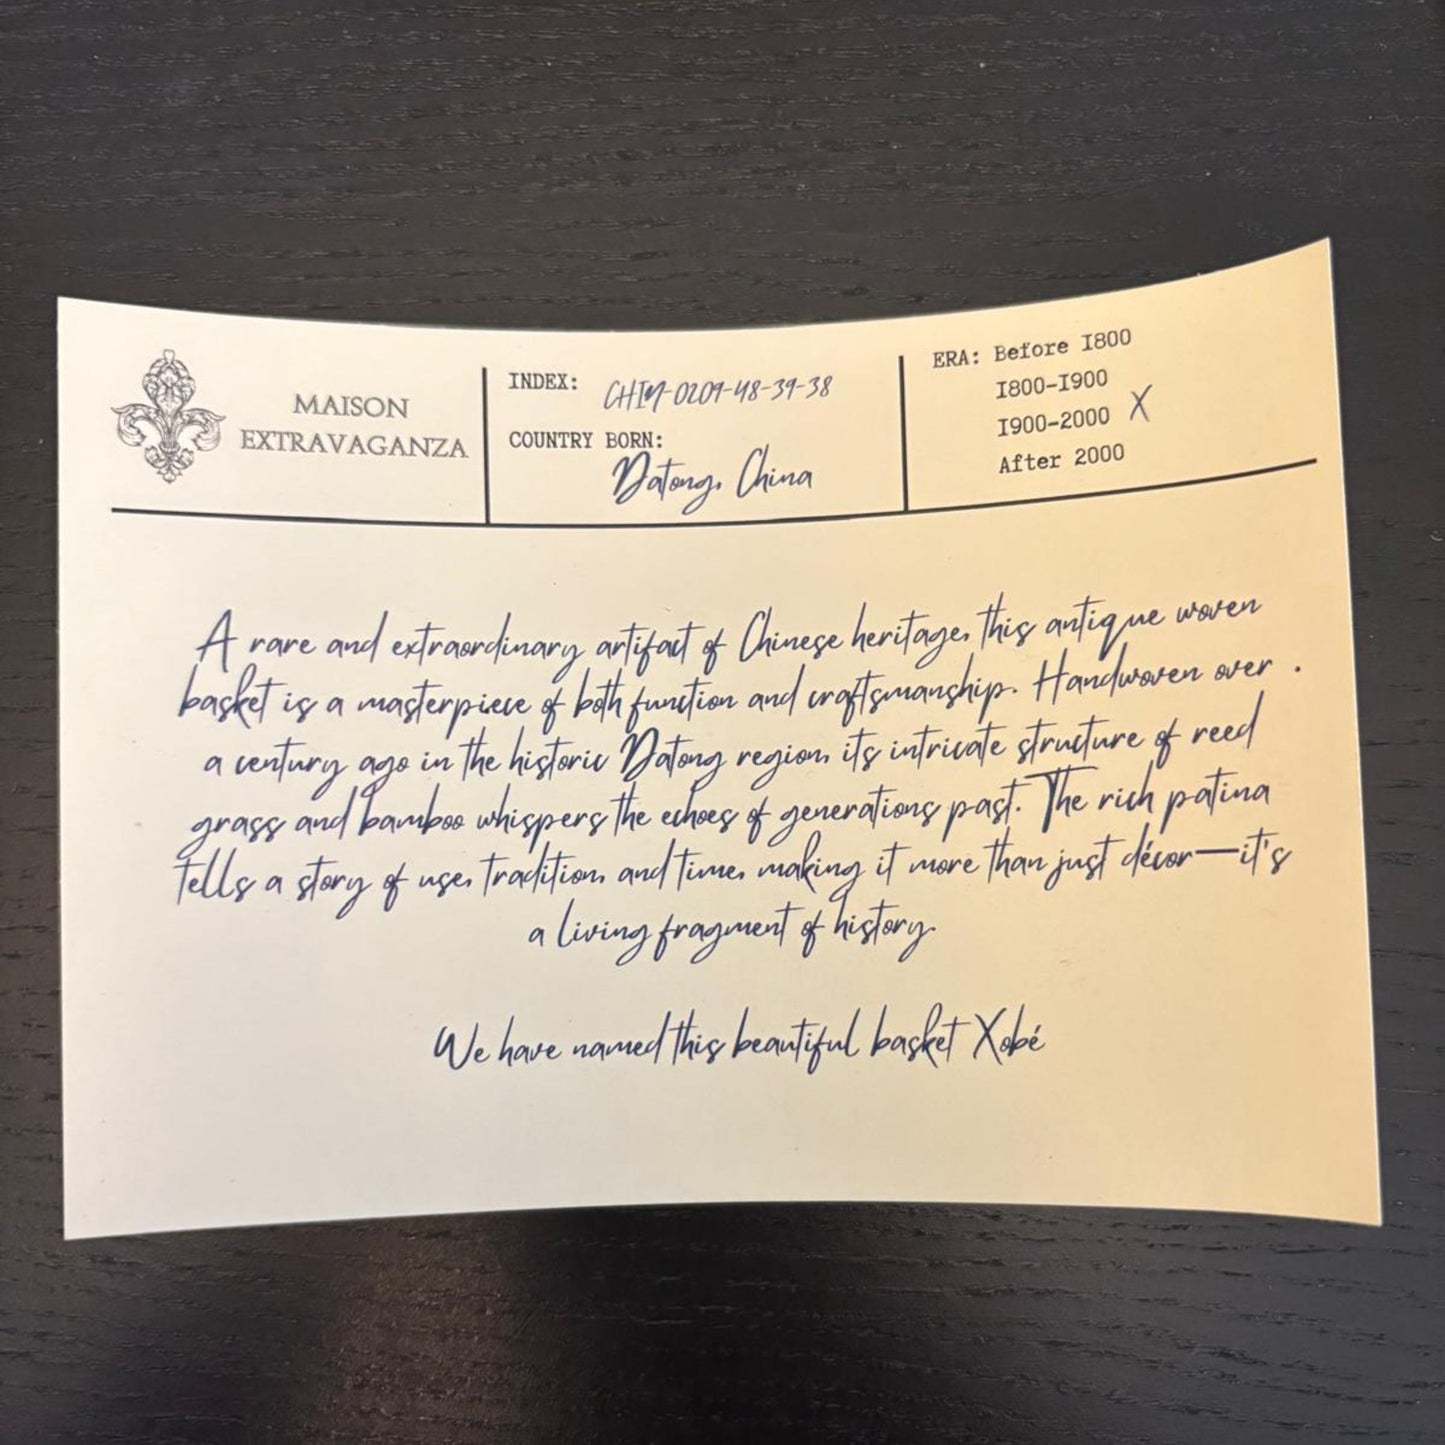 MAISON
EXTRAVAGANZA
INDEX: CHIN-0209-48-39-38
COUNTRY BORN:
Datong, China
ERA: Before I800
I800-I900
I900-2000 X
After 2000
A rare and extraordinary artifact of Chinese heritage, this antique woven
basket is a masterpiece of both function and craftsmanship. Handwoven over .
a century ago in the historic Datong region, its intricate structure of reed
grass and bamboo whispers the echoes of generations past. The rich patina
tells a story of use, tradition, and time, making it more than just décor—it's
a living fragment of history.
We have named this beautiful basket Xobé